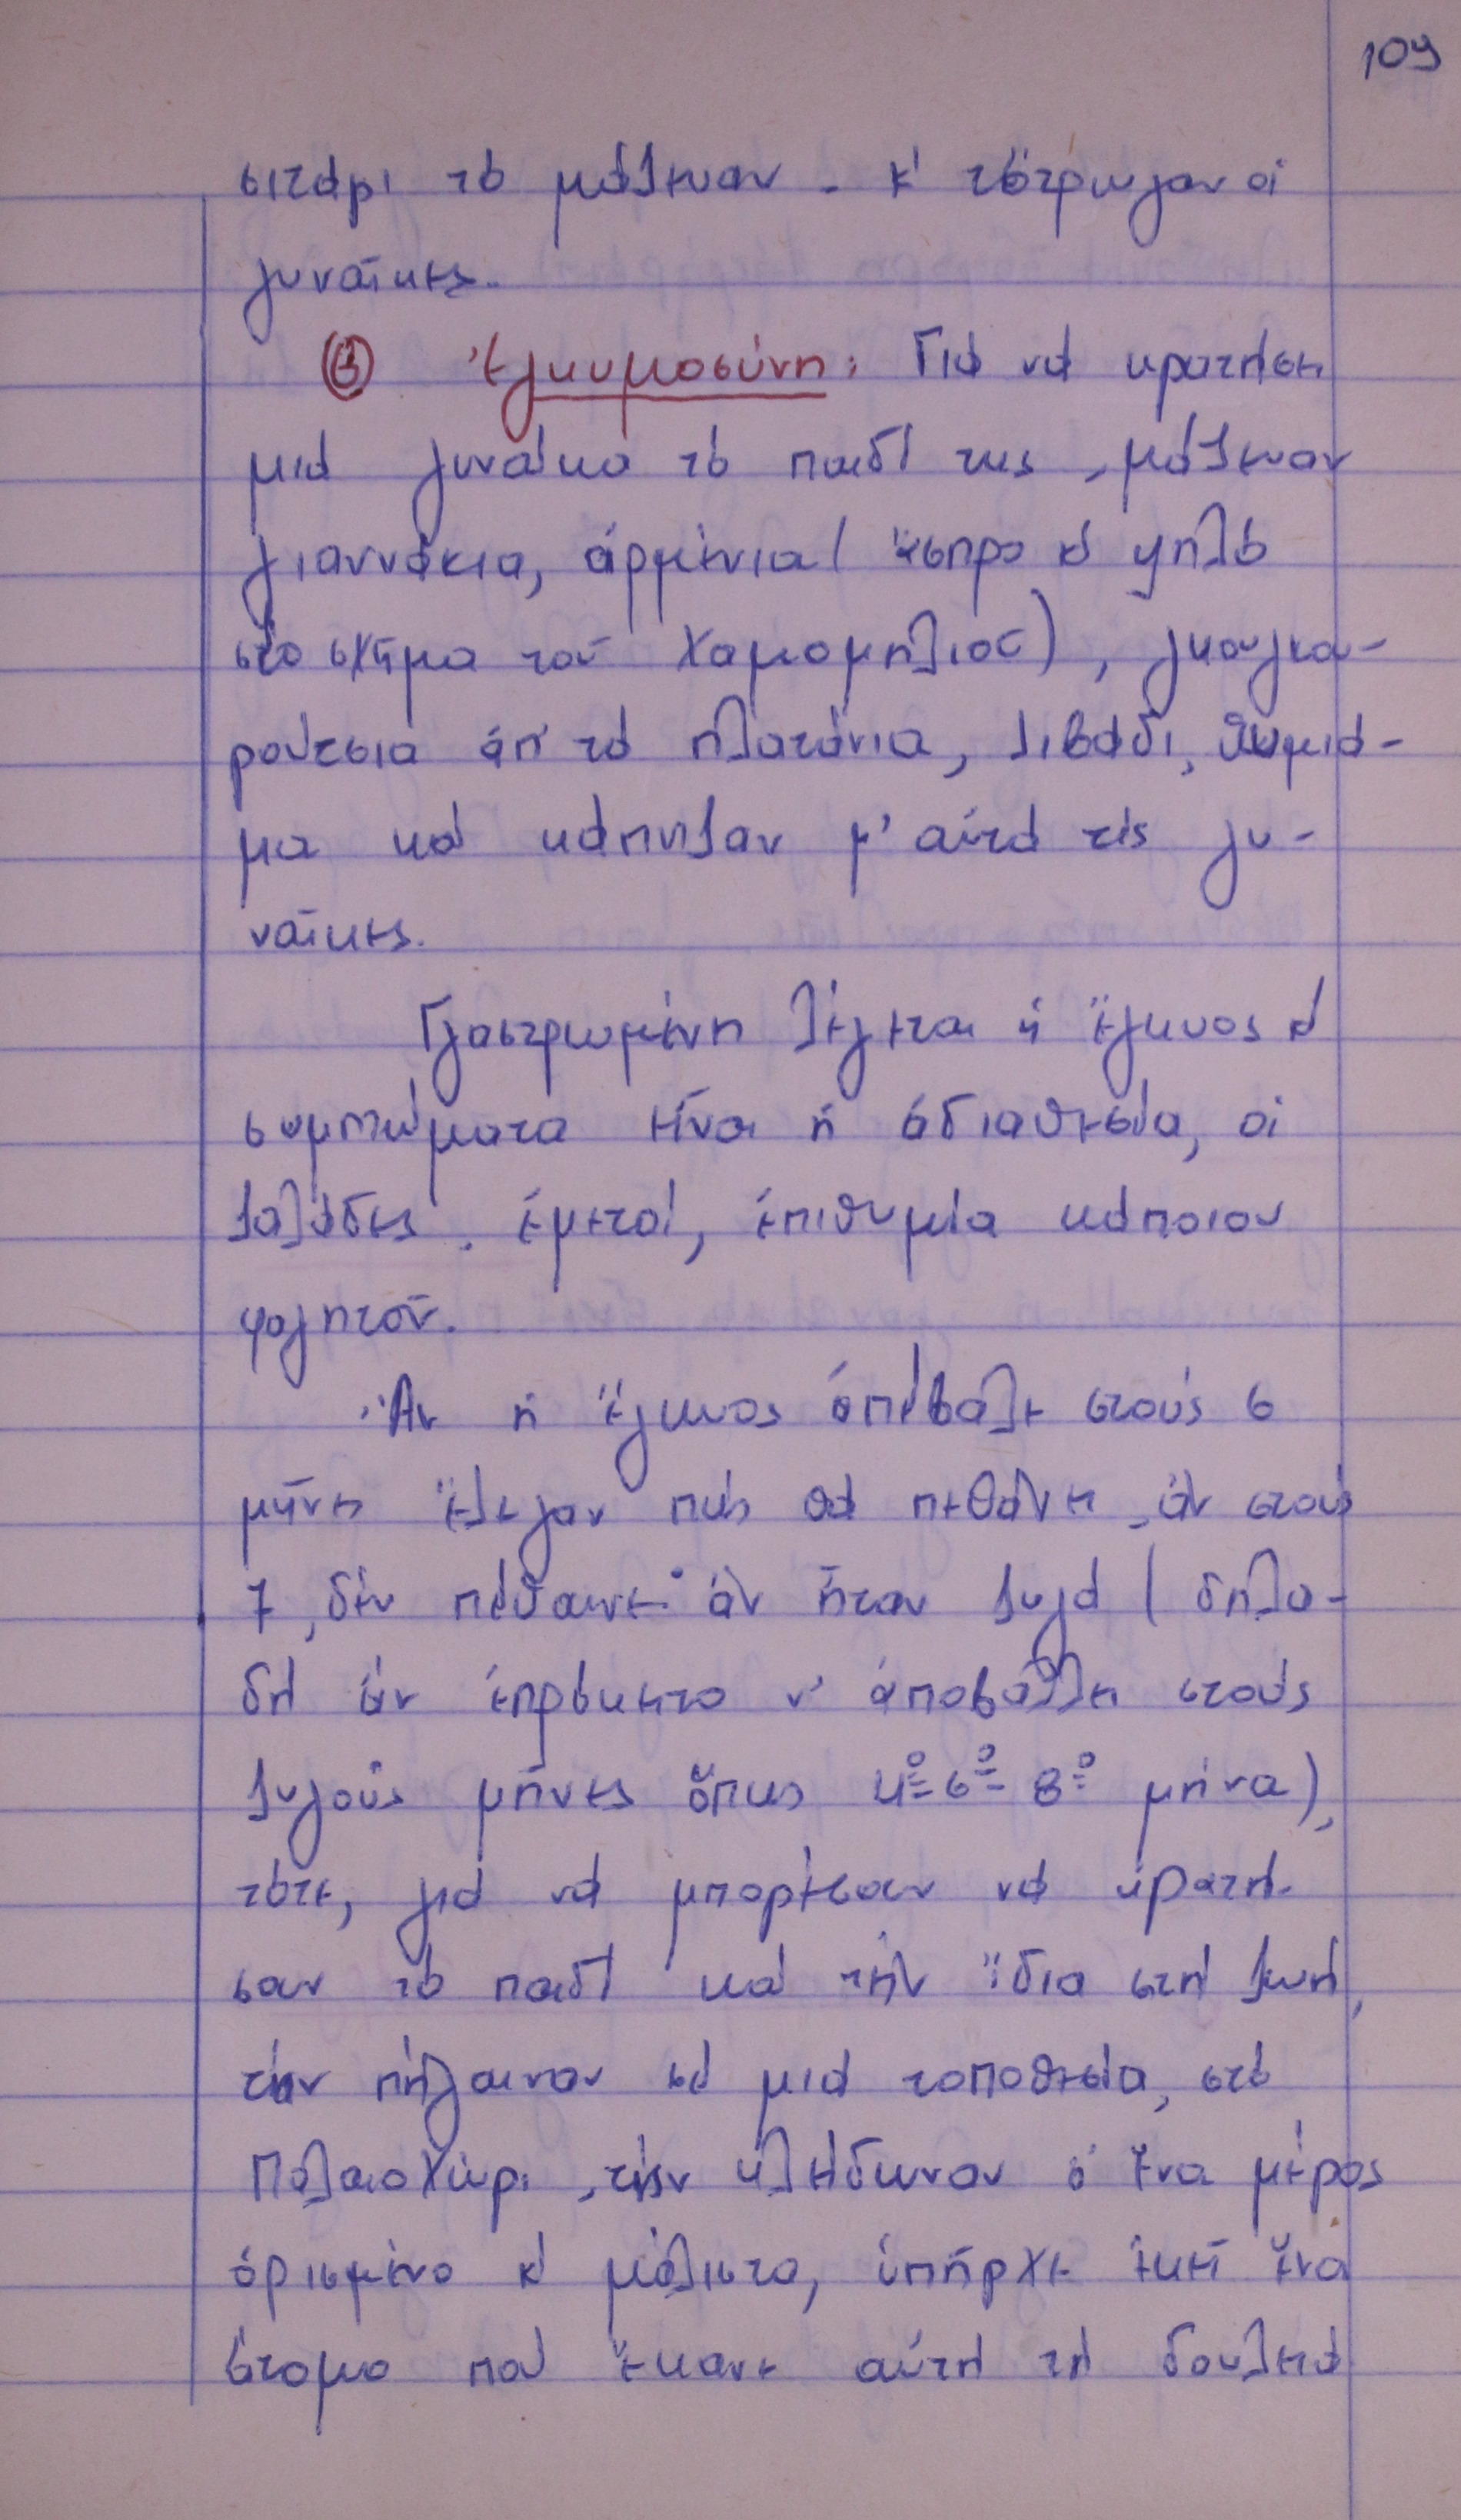 109
σιτάρι τό μάζευαν - κ' τὄτρωγαν οἱ
γυναῖκες.
β Ἐγκυμοσύνη: Γιά νά κρατήσει
μιά γυναίκα τό παιδί της, μάζευαν
γιαννάκια, ἀρμένια (ἄσπρο κ' ψηλό
στό σχῆμα τοῦ χαμομηλιοῦ), γκουγκα-
ρούτσια ἀπ' τά πλατάνια, λιβάδι, θυμιά-
μα καί κάπνιζαν μ' αὐτά τίς γυ-
ναῖκες.
Γγαστρωμένη λέγεται ἡ ἔγκυος κ'
συμπτώματα εἶναι ἡ ἀδιαθεσία, οἱ
ζαλάδες, ἐμετοί, ἐπιθυμία κάποιου
φαγητοῦ.
Ἄν ἡ ἔγκυος ἀπέβαλε στούς 6
μῆνες ἔλεγαν πώς θά πεθάνει, ἄν στούς
7, δέν πέθαινε· ἄν ἦταν ζυγά (δηλα-
δή ἄν ἐπρόκειτο ν' ἀποβάλλει στούς
ζυγούς μῆνες ὅπως 4º 6º 8º μήνα),
τότε, γιά νά μπορέσουν νά κρατή-
σουν τό παιδί καί τήν ἴδια στή ζωή,
τήν πήγαιναν σέ μιά τοποθεσία, στό
Παλαιοχώρι, τήν κλείδωναν σ' ἕνα μέρος
ὁρισμένο κ' μάλιστα, ὑπῆρχε ἐκεῖ ἕνα
ἄτομο πού ἔκανε αὐτή τή δουλειά